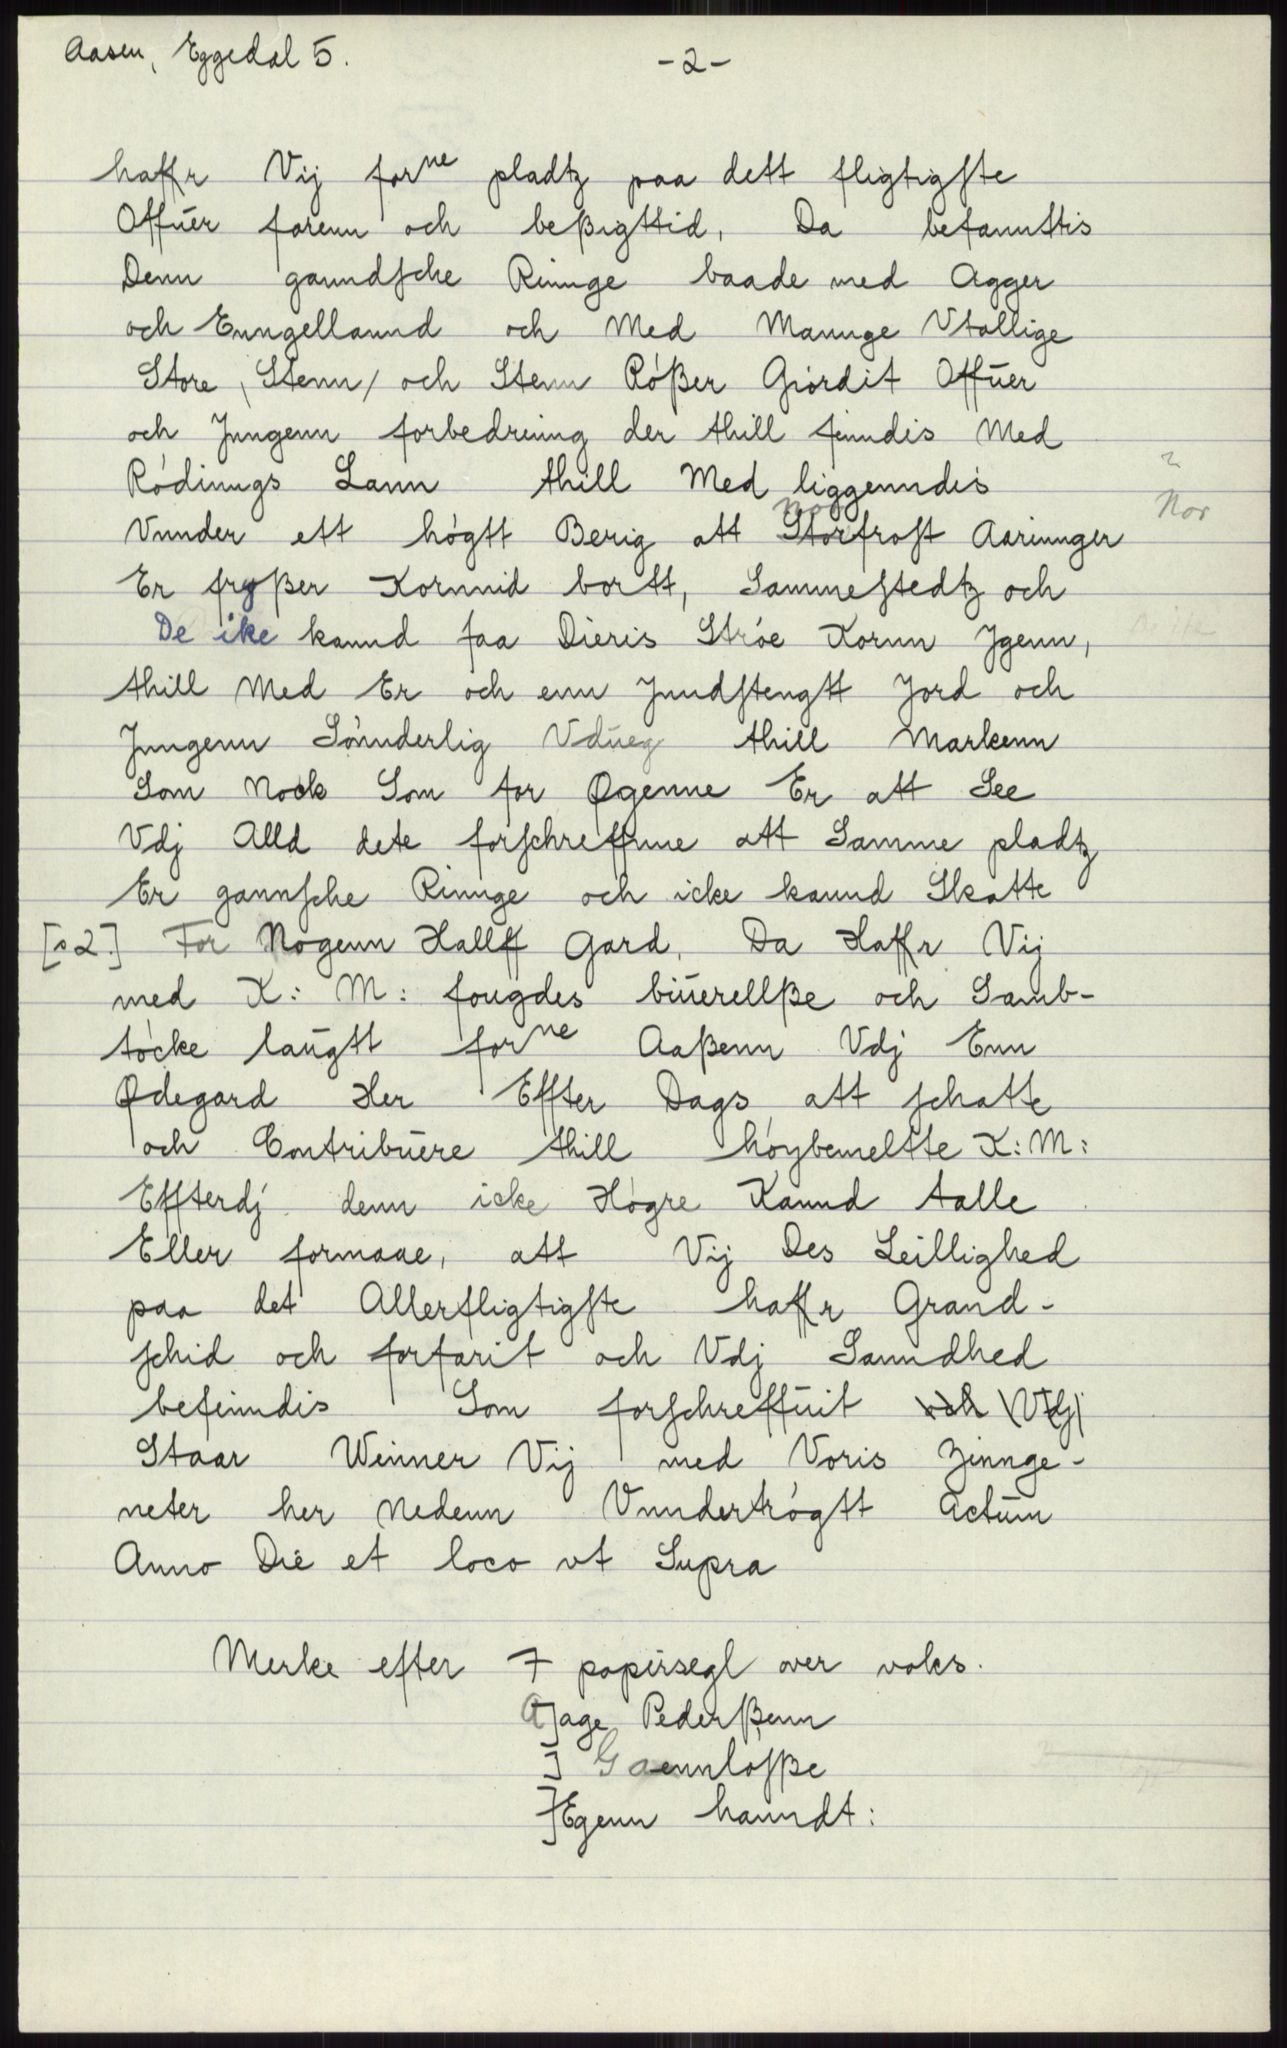 Aasen, Eggedal 5.
-2-
haffr Vij forne pladtz paa dett fligtigste
Offuer farenn och beßigttid, Da befanntis
Denn ganndsche Rinnge baade med Agger
och Enngellannd och Med Mannge Vtallige
Store, Stenn / och Stenn Rößer Giördit Offuer
och Jnngenn forbedrinng der thill finndis Med
Rödinngs Lann thill Med liggenndis
Vnnder ett högtt Berig att Storfrost Aarinnger
nor
Nor
Er fryßer Kornnid bortt, Sammestedtz och
De ike kannd faa Dieris Ströe Kornn Jgenn,
thill Med Er och enn Jnndstengtt Jord och
Jnngenn Sönnderlig Vdueg thill Markenn
Som Nock Som for Øgenne Er att See
Vdj Alld dete forschreffnne att Samme pladtz
Er gannsche Rinnge och icke kannd Skatte
[s 2.] For Nogenn Hallff Gard, Da Haffr Vij
med K: M: fougdes biuerellße och Samb-
töcke laugtt forne Aaßenn Vdj Enn
Ødegard Her Effter Dags att schatte
och Contribuere thill höybemeltte K: M:
Effterdj denn icke Högre Kannd talle
Eller formaae, att Vij Des Leillighed
paa det Allerfligtigste haffr Grand-
schid och forfarit och Vdj Sanndhed
befinndis Som forschreffuit och \Vdj/
Staar Winner Vij med Voris Zinnge-
neter her Nedenn Vnndertrögtt Actum
Anno Die et loco vt Supra
Merke efter 7 papirsegl over voks.
A]age Pederßenn
] Gaennlösße
]Egenn hanndt: